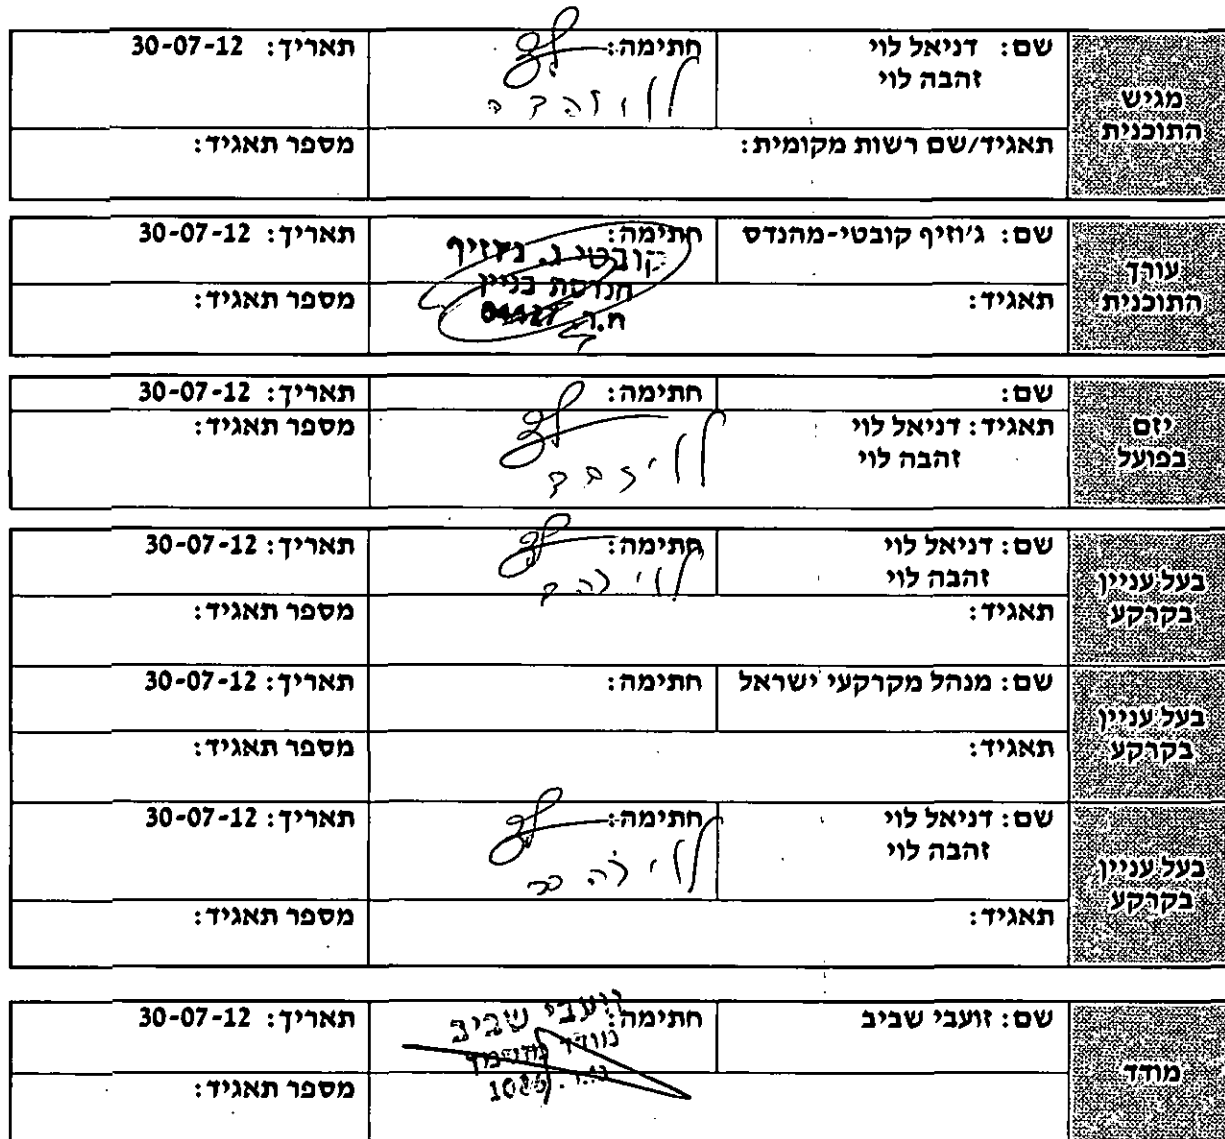 מגיש
התוכנית
שם: דניאל לוי
זהבה לוי
חתימה:
תאריך: 30-07-12
תאגיד/שם רשות מקומית:
מספר תאגיד:
עורך
התוכנית
שם: ג'וזיף קובטי-מהנדס
חתימה:
קובטי ג.
הנדסת בניין
מ.ר.
תאריך: 30-07-12
תאגיד:
מספר תאגיד:
יזם
בפועל
שם:
חתימה:
תאריך: 30-07-12
תאגיד: דניאל לוי
זהבה לוי
מספר תאגיד:
בעל עניין
בקרקע
שם: דניאל לוי
זהבה לוי
חתימה:
תאריך: 30-07-12
תאגיד:
מספר תאגיד:
בעל עניין
בקרקע
שם: מנהל מקרקעי ישראל
חתימה:
תאריך: 30-07-12
תאגיד:
מספר תאגיד:
בעל עניין
בקרקע
שם: דניאל לוי
זהבה לוי
חתימה:
תאריך: 30-07-12
תאגיד:
מספר תאגיד:
מודד
שם: זועבי שביב
חתימה:
זועבי שביב
מודד מוסמך
תאריך: 30-07-12
מספר תאגיד: